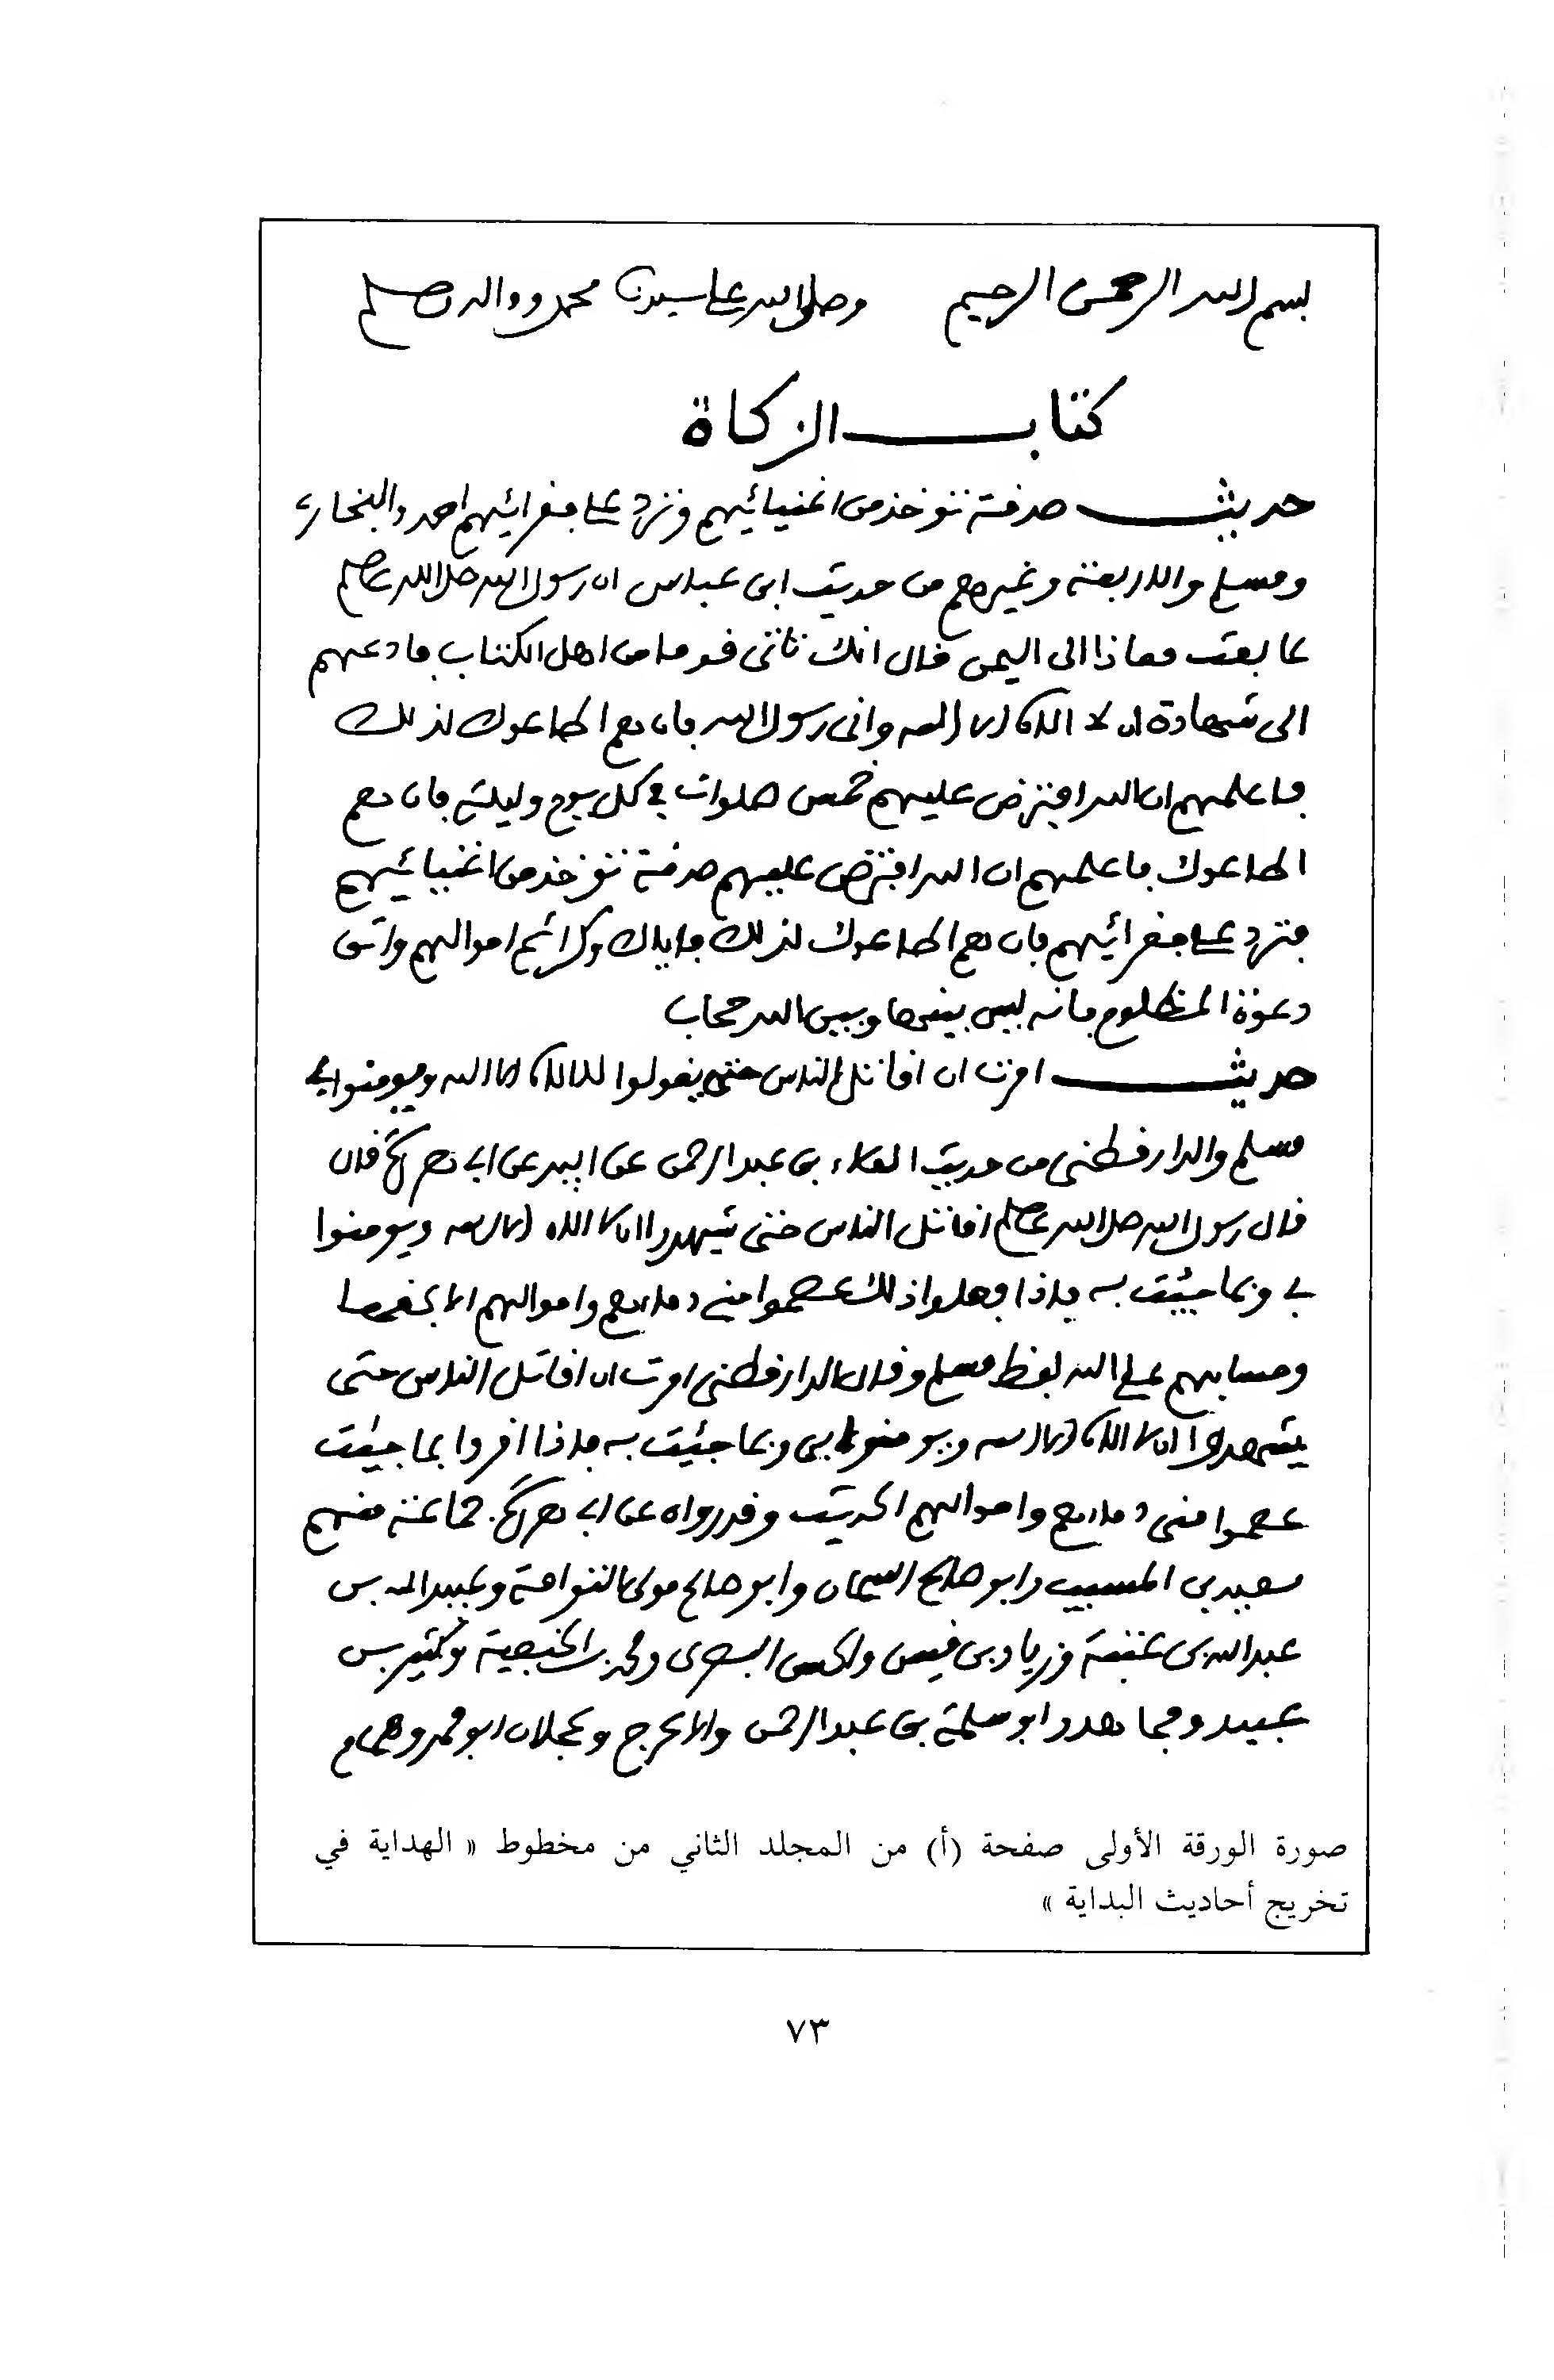 بسم الله الرحمن الرحيم وصلى الله على سيدنا محمد وءاله وسلم
كتاب الزكاة
حديث صدقة تؤخذ من اغنيائهم وترد على فقرائهم احمد والبخارى
ومسلم والاربعة وغيرهم من حديث ابن عباس ان رسول الله صلى الله عليه وسلم
لما بعث معاذا الى اليمن قال انك تاتى قوما من اهل الكتاب فادعهم
الى شهادة ان لا اله الا الله وانى رسول الله فان هم اطاعوك لذلك
فاعلمهم ان الله افترض عليهم خمس صلوات في كل يوم وليلة فان هم
اطاعوك فاعلمهم ان الله افترض عليهم صدقة تؤخذ من اغنيائهم
فترد على فقرائهم فان هم اطاعوك لذلك فاياك وكرائم اموالهم واتق
دعوة المظلوم فانه ليس بينها وبين الله حجاب
حديث امرت ان اقاتل الناس حتى يقولوا لا اله الا الله ويومنوا بي
مسلم والدارقطنى من حديث العلاء بن عبد الرحمن عن ابيه عن ابي هريرة قال
قال رسول الله صلى الله عليه وسلم اقاتل الناس حتى يشهدوا ان لا اله الا الله ويومنوا
بي وبما جيئت به فاذا فعلوا ذلك عصموا مني دماءهم واموالهم الا بحقها
وحسابهم على الله لفظ مسلم وقال الدارقطنى امرت ان اقاتل الناس حتى
يشهدوا ان لا اله الا الله ويومنوا بى وبما جئت به فاذا اقروا بما جيئت
عصموا منى دماءهم واموالهم الحديث وقد رواه عن ابي هريرة جماعة منهم
سعيد بن المسيب وابو صالح السمان وابو صالح مولى التوامة وعبيد الله بن
عبد الله بن عتبة وزياد بن قيس والحسن البصرى وكثير بن
عبيد ومجاهد وابو سلمة بن عبد الرحمن والاعرج وعجلان ابو محمد وهمام
صورة الورقة الأولى صفحة (أ) من المجلد الثاني من مخطوط « الهداية في
تخريج أحاديث البداية »
٧٣